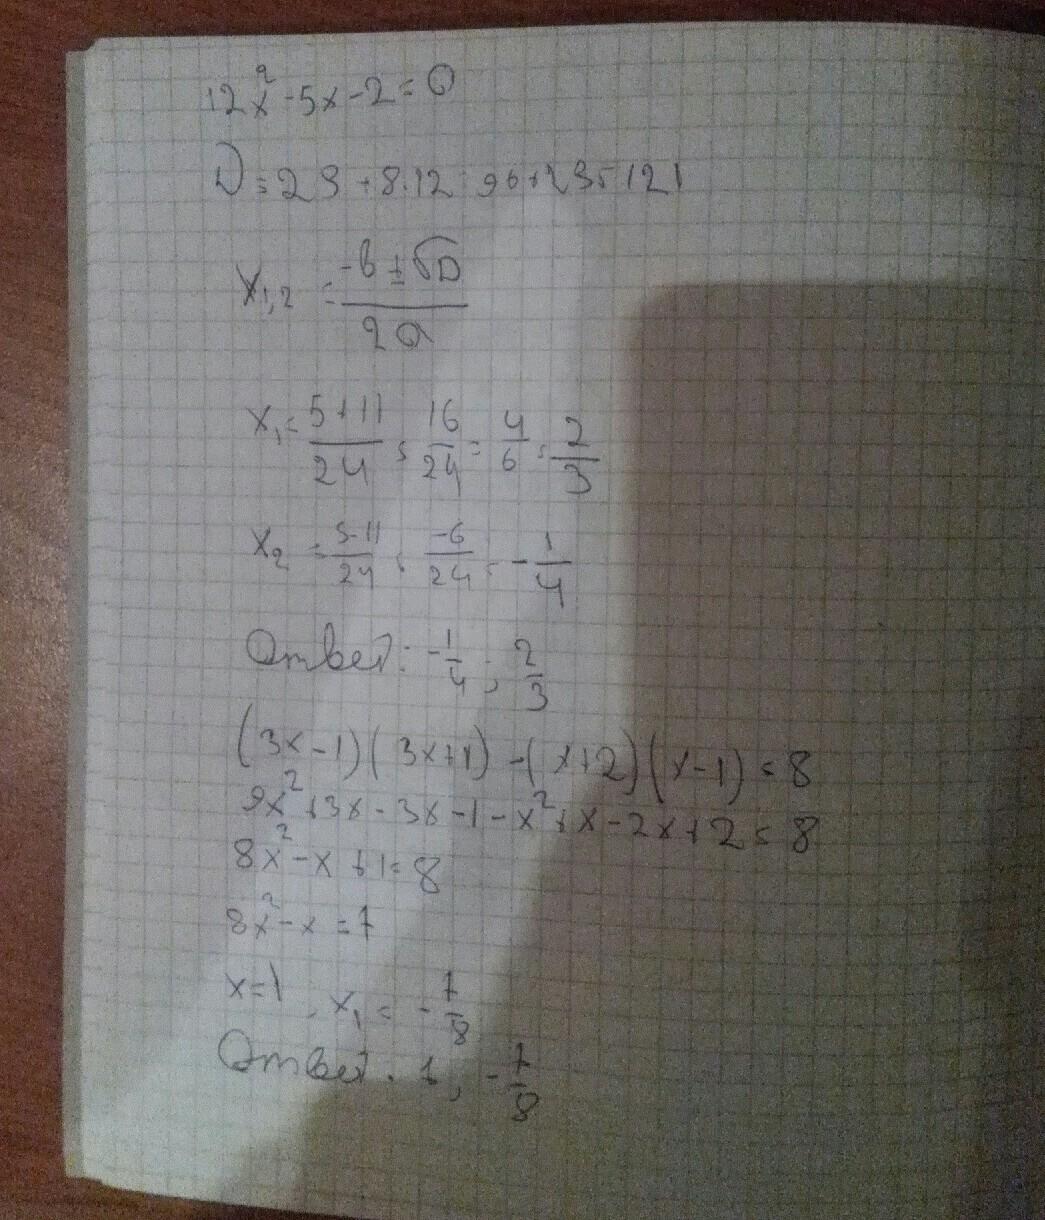 12x² - 5x - 2 = 0
D = 25 + 8·12 = 96 + 25 = 121
x₁,₂ = (-b ± √D) / 2a
x₁ = (5 + 11) / 24 = 16/24 = 4/6 = 2/3
x₂ = (5 - 11) / 24 = -6/24 = -1/4
Ответ: -1/4 ; 2/3
(3x - 1)(3x + 1) - (x + 2)(x - 1) = 8
9x² + 3x - 3x - 1 - x² + x - 2x + 2 = 8
8x² - x + 1 = 8
8x² - x = 7
x = 1 , x₁ = -7/8
Ответ. 1, -7/8